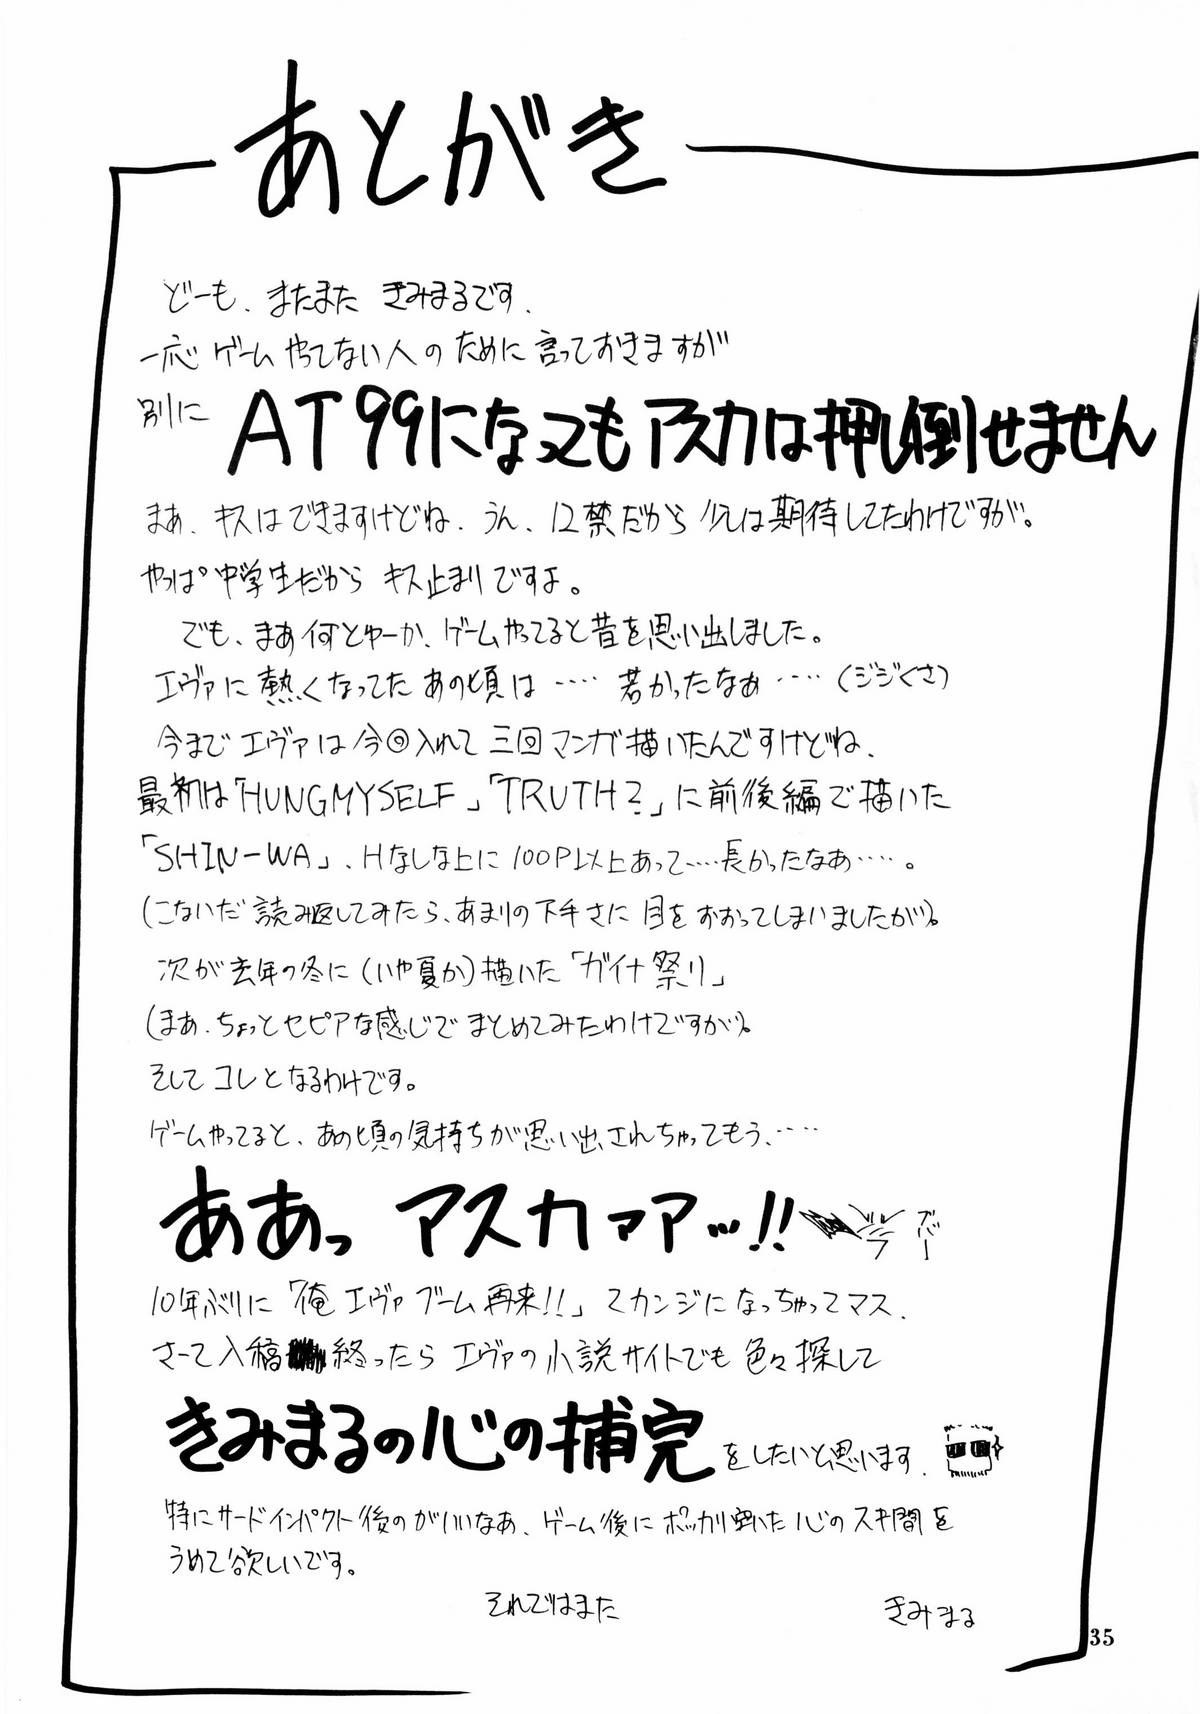 あとがき
どーも、またまた きみまるです.
一応 ゲーム やってない人の ために 言っておきますが
別に AT99になってもアスカは押し倒せません
まぁ、キスはできますけどね. うん、12禁だから 少しは期待してたわけですが。
やっぱ中学生だから キス止まりですよ。
でも、まあ何とゆーか、ゲームやってると昔を思い出しました。
エヴァに熱くなってた あの頃は‥‥ 若かったなぁ‥‥(ジジくさ)
今までエヴァは今回入れて三回マンガ描いたんですけどね、
最初は「HUNGMYSELF」「TRUTH?」に前後編で描いた
「SHIN-WA」、Hなしな上に100P以上あって‥‥長かったなあ‥‥。
(こないだ読み返してみたら、あまりの下手さに目をおおってしまいましたが)。
次が去年の冬に(いや夏か)描いた「ガイナ祭り」
(まあ、ちょっとセピアな感じでまとめてみたわけですが)。
そしてコレとなるわけです。
ゲームやってると、あの頃の気持ちが思い出されちゃってもう、‥‥
ああっ アスカァアッ!!
ブバー
10年ぶりに「俺エヴァブーム再来!!」スカンジになっちゃってマス.
さーて入稿 終ったら エヴァの小説サイトでも色々探して
きみまるの心の補完をしたいと思います.
特にサードインパクト後のがいいなあ、ゲーム後にポッカリ空いた心のスキ間を
うめて欲しいです。
それではまた
きみまる
35